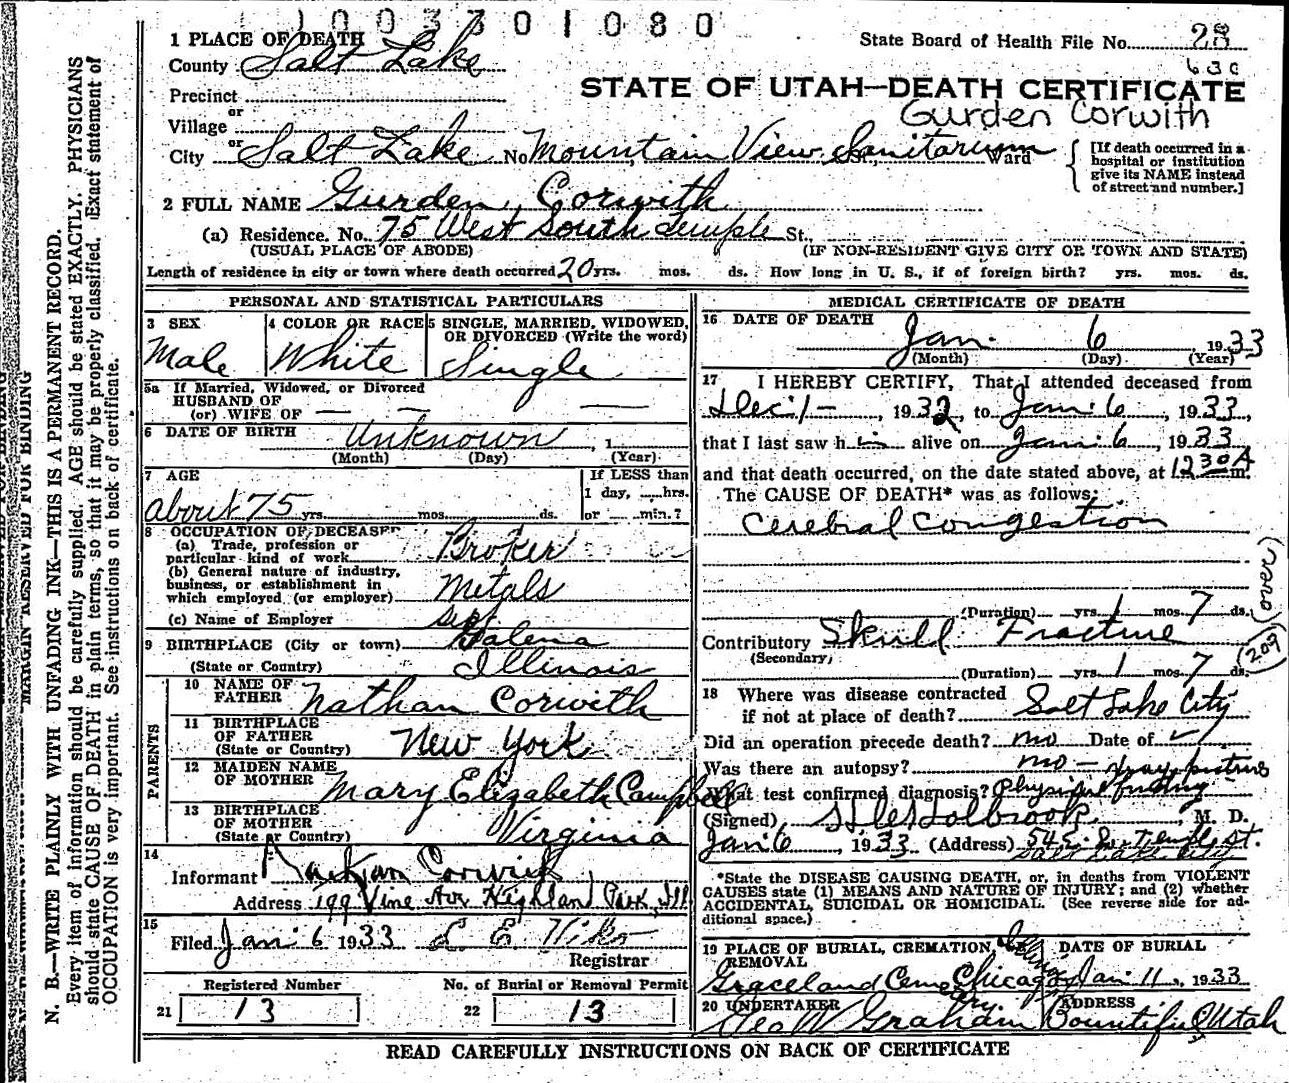 1003701080
1 PLACE OF DEATH
State Board of Health File No. 28
County Salt Lake
630
STATE OF UTAH—DEATH CERTIFICATE
Precinct
or
Gurden Corwith
Village
or
City Salt Lake No. Mountain View Sanitarium St., Ward
[If death occurred in a hospital or institution give its NAME instead of street and number.]
2 FULL NAME Gurden Corwith
(a) Residence. No. 75 West South Temple St.,
(USUAL PLACE OF ABODE) (IF NON-RESIDENT GIVE CITY OR TOWN AND STATE)
Length of residence in city or town where death occurred 20 yrs. mos. ds. How long in U. S., if of foreign birth? yrs. mos. ds.
PERSONAL AND STATISTICAL PARTICULARS
3 SEX 4 COLOR OR RACE 5 SINGLE, MARRIED, WIDOWED,
OR DIVORCED (Write the word)
Male White Single
5a If Married, Widowed, or Divorced
HUSBAND OF
(or) WIFE OF — — —
6 DATE OF BIRTH Unknown, 1
(Month) (Day) (Year)
7 AGE If LESS than
1 day, hrs.
about 75 yrs. mos. ds. or min.?
8 OCCUPATION OF DECEASED
(a) Trade, profession or
particular kind of work Broker
(b) General nature of industry,
business, or establishment in
which employed (or employer) Metals
(c) Name of Employer
9 BIRTHPLACE (City or town) Galena
(State or Country) Illinois
PARENTS
10 NAME OF
FATHER Nathan Corwith
11 BIRTHPLACE
OF FATHER
(State or Country) New York
12 MAIDEN NAME
OF MOTHER Mary Elizabeth Campbell
13 BIRTHPLACE
OF MOTHER
(State or Country) Virginia
14
Informant Nathan Corwith
Address 199 Vine Av Highland Park, Ill
15
Filed Jan 6 1933 L E
Registrar
Registered Number No. of Burial or Removal Permit
21 13 22 13
MEDICAL CERTIFICATE OF DEATH
16 DATE OF DEATH
Jan. 6, 1933
(Month) (Day) (Year)
17 I HEREBY CERTIFY, That I attended deceased from
Dec 1 -, 1932, to Jan 6, 1933,
that I last saw h im alive on Jan 6, 1933
and that death occurred, on the date stated above, at 1230 A m.
The CAUSE OF DEATH* was as follows:
Cerebral Congestion
(Duration) yrs. 1 mos. 7 ds.
(over)
Contributory Skull Fracture
(Secondary)
(209)
(Duration) yrs. 1 mos. 7 ds.
18 Where was disease contracted
if not at place of death? Salt Lake City
Did an operation precede death? no Date of
Was there an autopsy? no - Xray pictures
What test confirmed diagnosis? Physical finding
(Signed) Holbrook, M. D.
Jan 6, 1933 (Address) 54 E. So. Temple St.
Salt Lake City
*State the DISEASE CAUSING DEATH, or, in deaths from VIOLENT
CAUSES state (1) MEANS AND NATURE OF INJURY; and (2) whether
ACCIDENTAL, SUICIDAL OR HOMICIDAL. (See reverse side for ad-
ditional space.)
19 PLACE OF BURIAL, CREMATION, OR DATE OF BURIAL
REMOVAL Illinois
Graceland Cemetery Chicago Jan 11, 1933
20 UNDERTAKER ADDRESS
Geo W Graham Bountiful Utah
READ CAREFULLY INSTRUCTIONS ON BACK OF CERTIFICATE
MARGIN RESERVED FOR BINDING
N. B.—WRITE PLAINLY WITH UNFADING INK—THIS IS A PERMANENT RECORD.
Every item of information should be carefully supplied. AGE should be stated EXACTLY. PHYSICIANS
should state CAUSE OF DEATH in plain terms, so that it may be properly classified. Exact statement of
OCCUPATION is very important. See instructions on back of certificate.